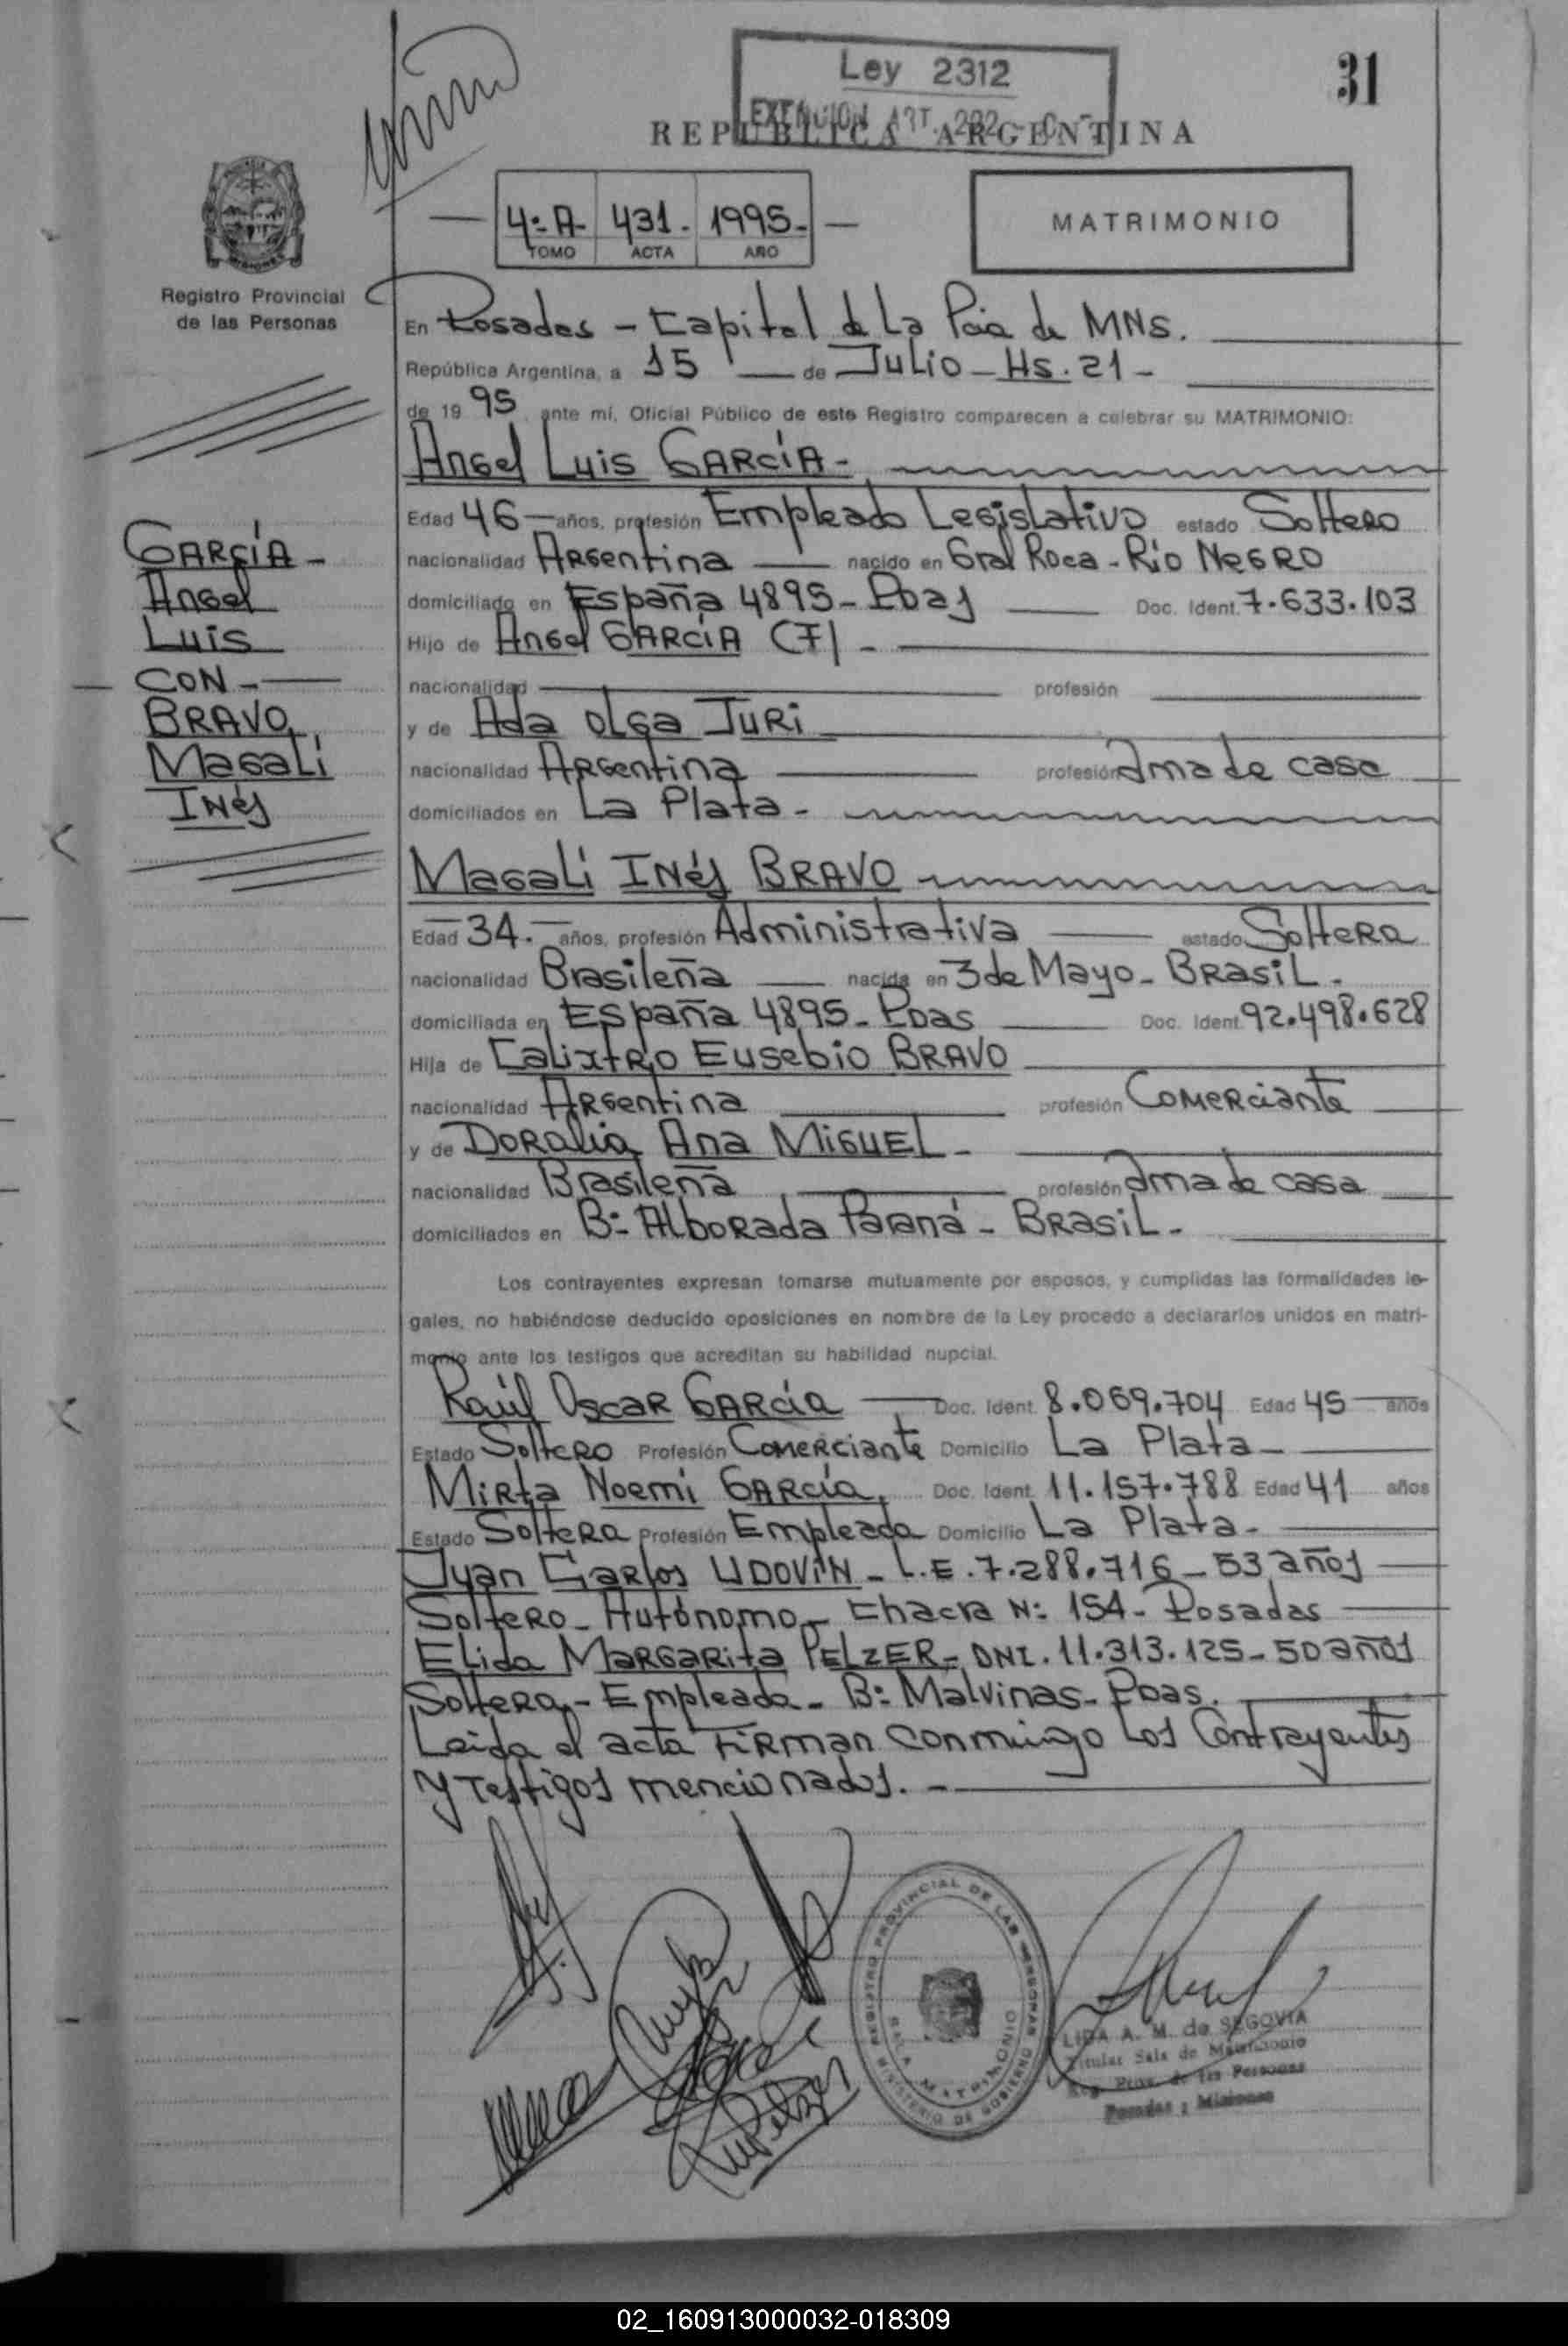 Ley 2312
EXENCION ART. 292
31
REPUBLICA ARGENTINA
4:A 431. 1995-
TOMO ACTA AÑO
MATRIMONIO
Registro Provincial
de las Personas
En Posadas - Capital de La Pcia de MNS.
República Argentina, a 15 de Julio - Hs. 21 -
de 1995, ante mí, Oficial Público de este Registro comparecen a celebrar su MATRIMONIO:
Angel Luis GARCÍA -
Edad 46 años, profesión Empleado Legislativo estado Soltero
nacionalidad Argentina nacido en Gral Roca - Río Negro
domiciliado en España 4895 - Pdas Doc. Ident. 7.633.103
Hijo de Angel GARCÍA (F) -
nacionalidad profesión
y de Ada Olga JURI
nacionalidad Argentina profesión Ama de casa
domiciliados en La Plata -
GARCÍA -
Angel
Luis
CON -
BRAVO
Magali
Inés
Magali Inés BRAVO
Edad 34. años, profesión Administrativa estado Soltera
nacionalidad Brasileña nacida en 3 de Mayo - Brasil -
domiciliada en España 4895 - Pdas Doc. Ident. 92.498.628
Hija de Calixtro Eusebio BRAVO
nacionalidad Argentina profesión Comerciante
y de Doralia Ana MIGUEL -
nacionalidad Brasileña profesión Ama de casa
domiciliados en B: Alborada Paraná - Brasil -
Los contrayentes expresan tomarse mutuamente por esposos, y cumplidas las formalidades le-
gales, no habiéndose deducido oposiciones en nombre de la Ley procedo a declararlos unidos en matri-
monio ante los testigos que acreditan su habilidad nupcial.
Raúl Oscar GARCÍA Doc. Ident. 8.069.704 Edad 45 años
Estado Soltero Profesión Comerciante Domicilio La Plata -
Mirta Noemí GARCÍA, Doc. Ident. 11.157.788 Edad 41 años
Estado Soltera Profesión Empleada Domicilio La Plata -
Juan Carlos UDOVIN - L.E. 7.288.716 - 53 años
Soltero - Autónomo - Chacra N: 154 - Posadas
Elida Margarita PELZER - DNI. 11.313.125 - 50 años
Soltera - Empleada - B: Malvinas - Pdas.
Leida el acta firman conmingo los Contrayentes
y Testigos mencionados. -
REGISTRO PROVINCIAL DE LAS PERSONAS
SALA MATRIMONIO
MINISTERIO DE GOBIERNO
LIDA A. M. de SEGOVIA
Titular Sala de Matrimonio
Reg. Prov. de las Personas
Posadas : Misiones
02_160913000032-018309